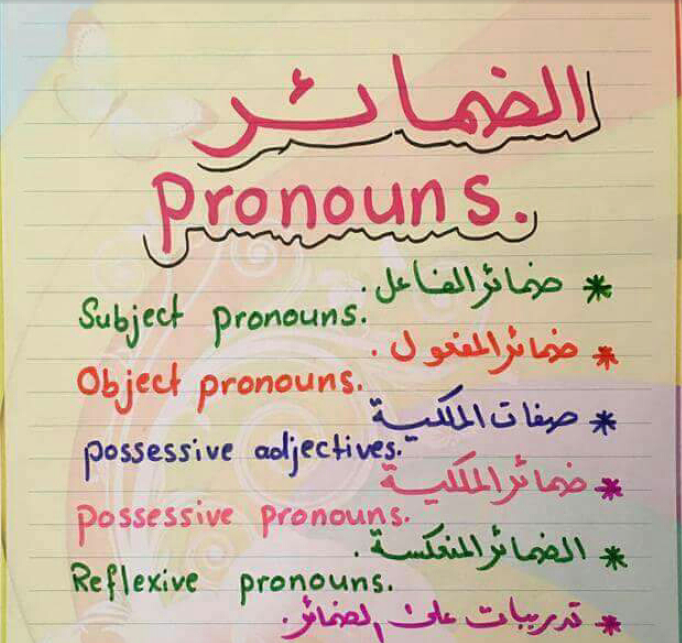 الضمائر
pronouns.
* ضمائر الفاعل.
Subject pronouns.
* ضمائر المفعول.
Object pronouns.
* صفات الملكية
possessive adjectives.
* ضمائر الملكية
possessive pronouns.
* الضمائر المنعكسة.
Reflexive pronouns.
* تدريبات على الضمائر.